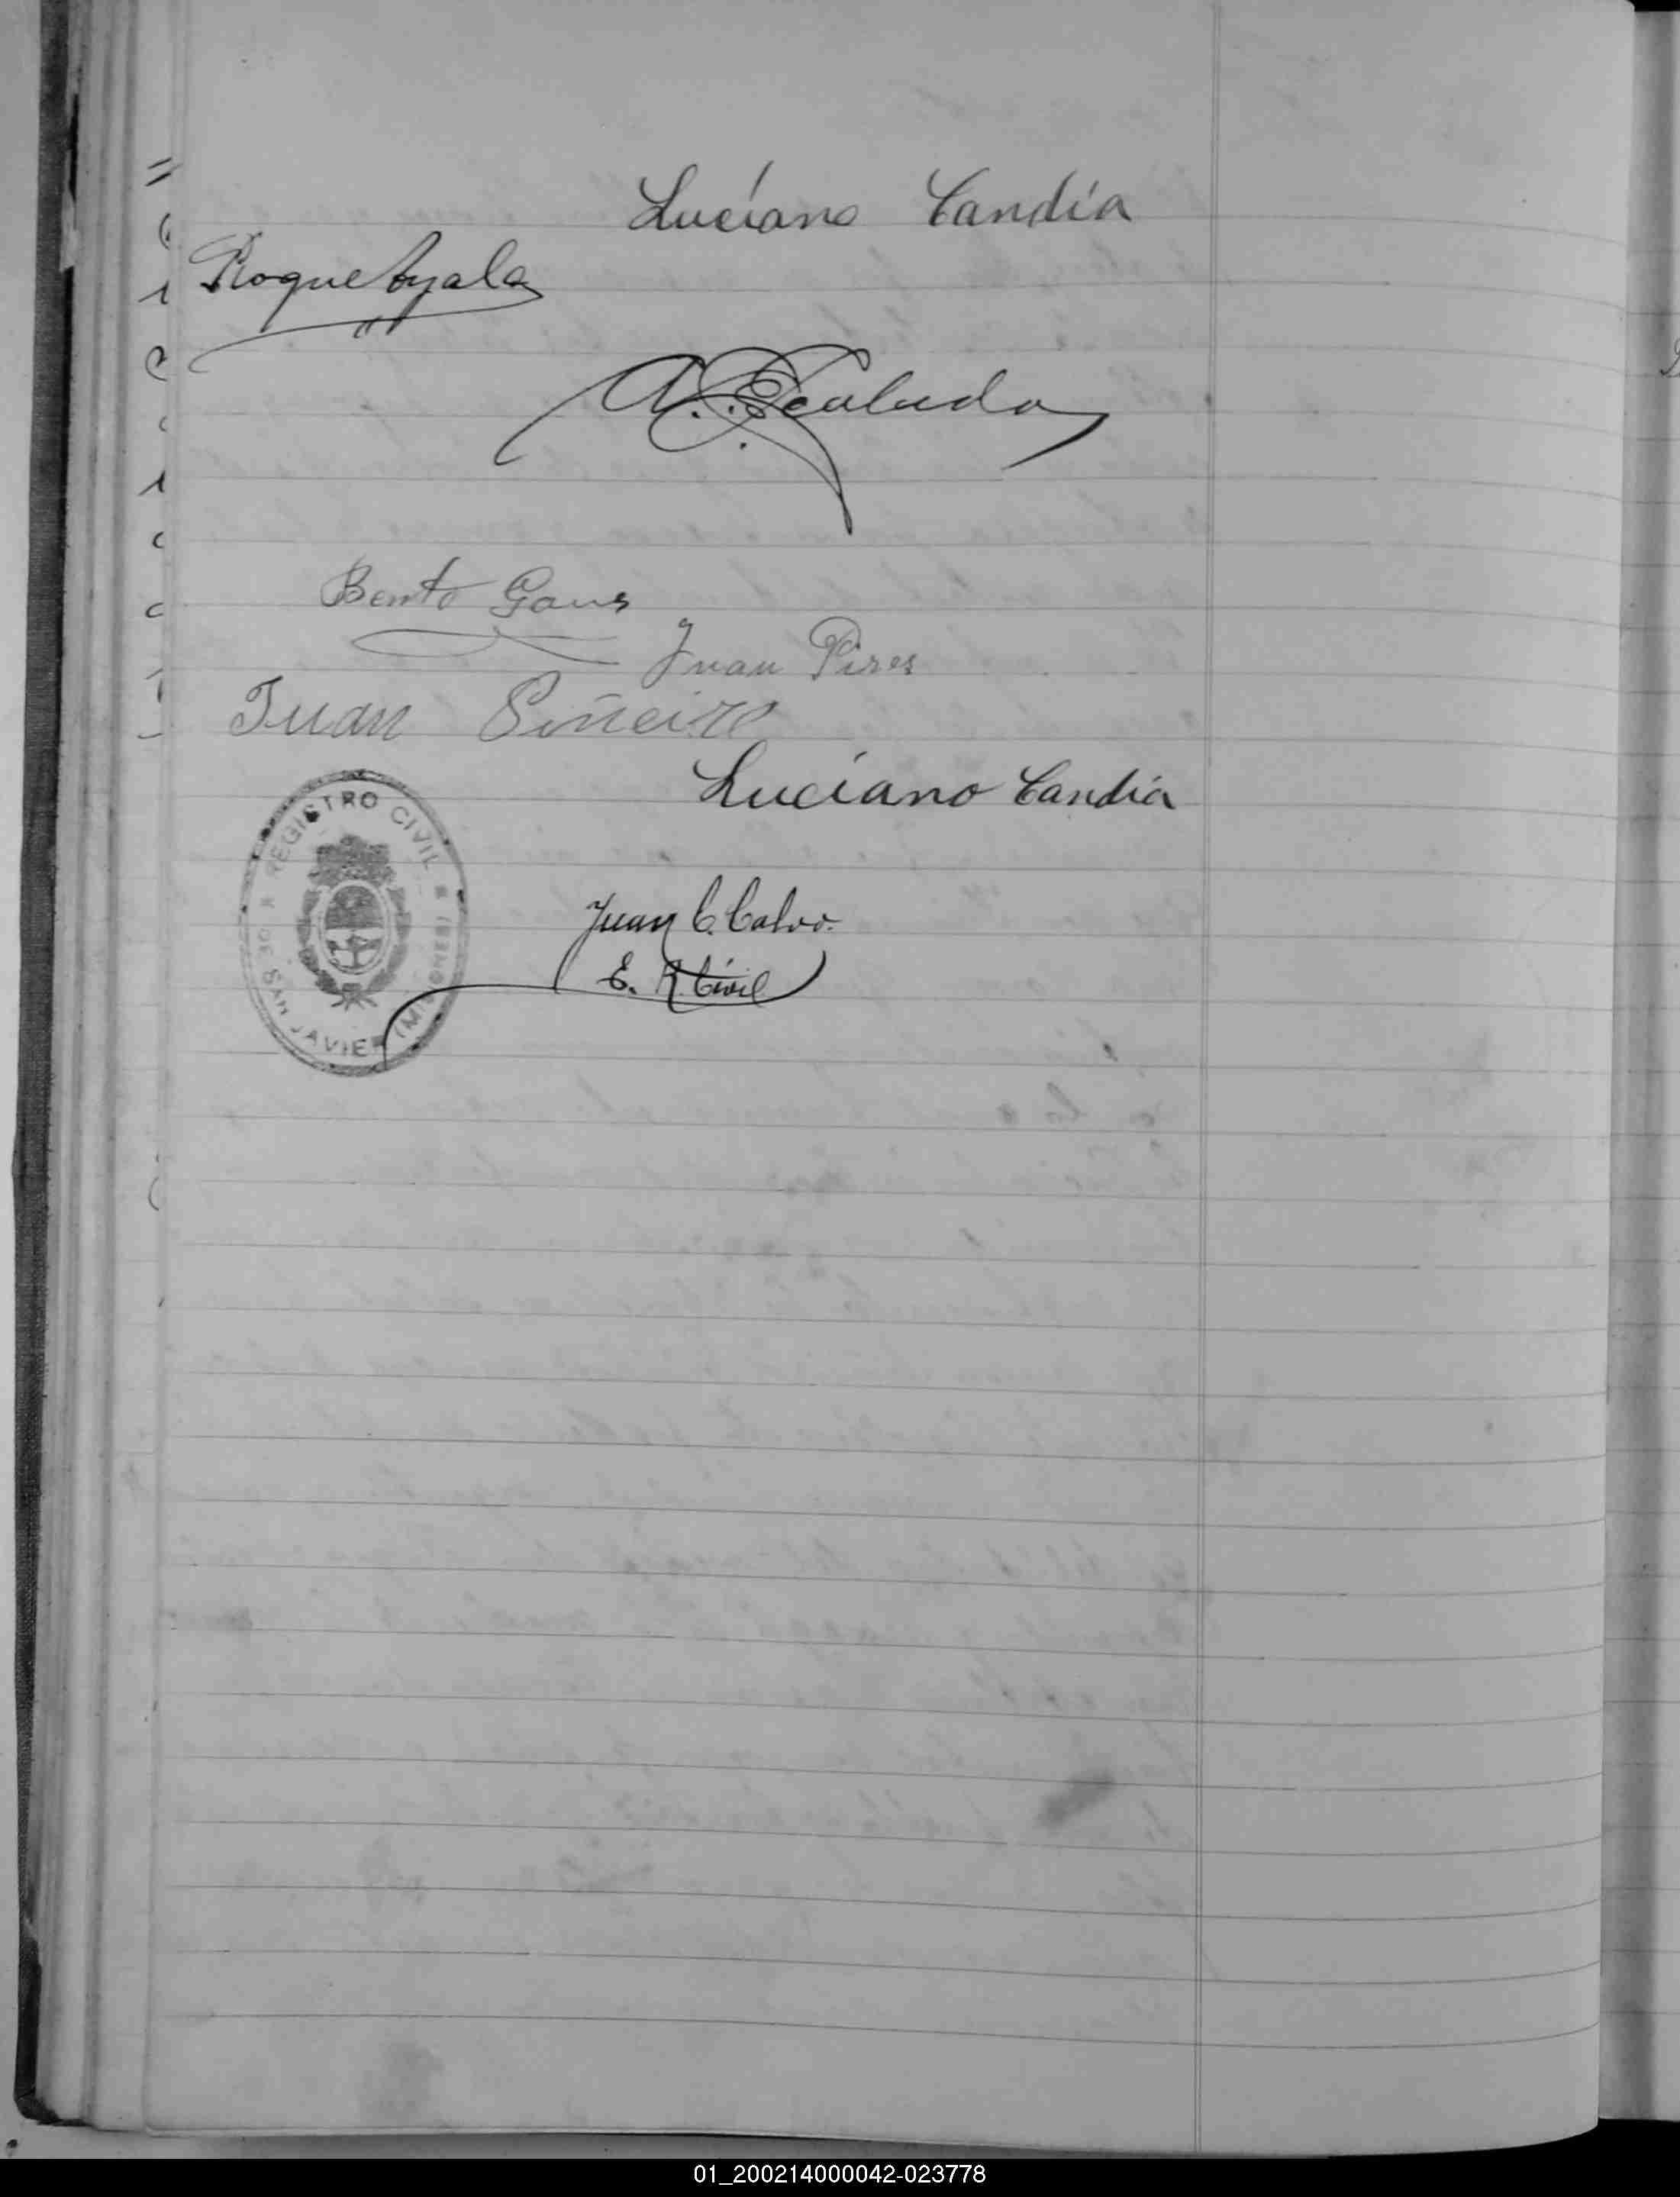 Luciano Candia
Roque Ayala
A. Escalada
Bento Gaus
Juan Pires
Juan Piñeiro
Luciano Candia
REGISTRO CIVIL
DE SAN JAVIER (MISIONES)
Juan C. Calvo.
E. R. Civil
01_200214000042-023778